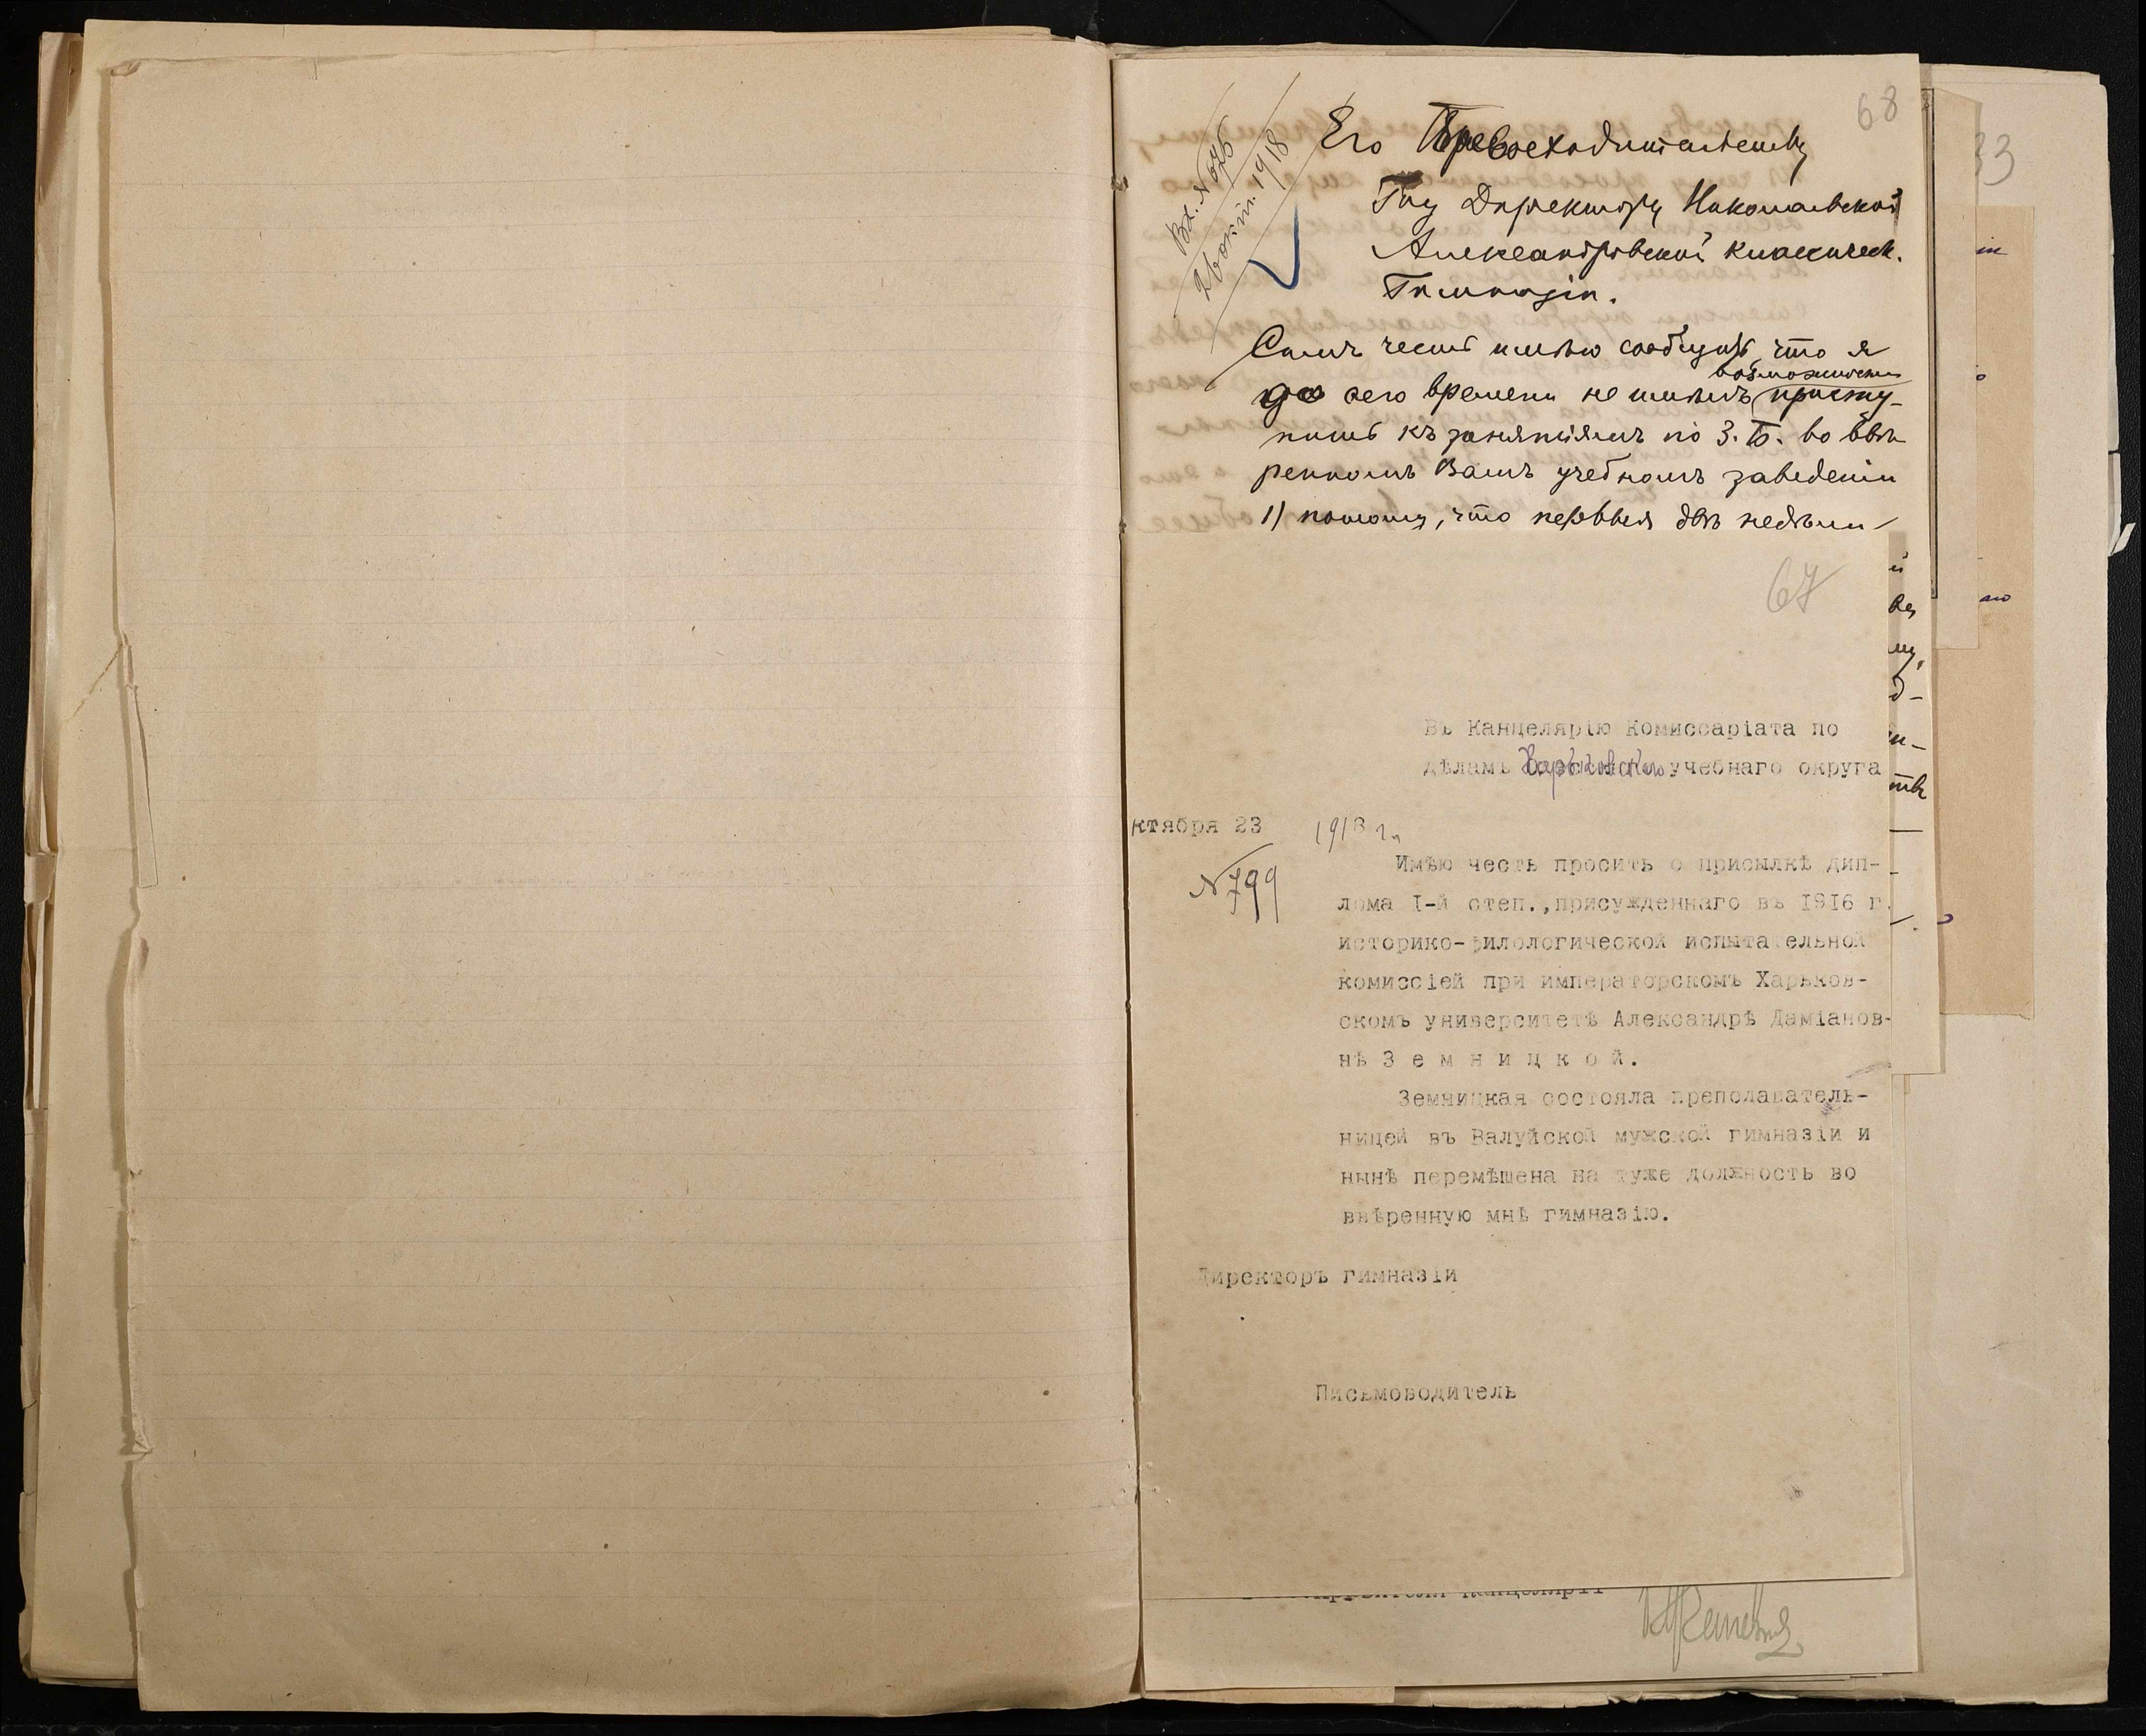 68
Вх. N 675
26 окт. 1918
Его Превосходительству
Гну Директору Николаевской
Александровской классическ.
Гимназіи.
Симъ честь имѣю сообщить, что я
возможности
до сего времени не имѣлъ присту-
пить къ занятіямъ по З. Б. во ввѣ
ренномъ Вамъ учебномъ заведеніи
1) потому, что первыя двѣ недѣли
67
Въ Канцелярію Комиссаріата по
дѣламъ Харьковскаго учебнаго округа
ктября 23 1918 г.
N 799
Имѣю честь просить о присылкѣ дип-
лома I-й степ., присужденнаго въ 1916 г.
историко-филологической испытательной
комиссіей при императорскомъ Харьков-
скомъ университетѣ Александрѣ Даміанов-
нѣ З е м н и ц к о й.
Земницкая состояла преподаватель-
ницей въ Валуйской мужской гимназіи и
нынѣ перемѣщена на туже должность во
ввѣренную мнѣ гимназію.
Директоръ гимназіи
Письмоводитель
33